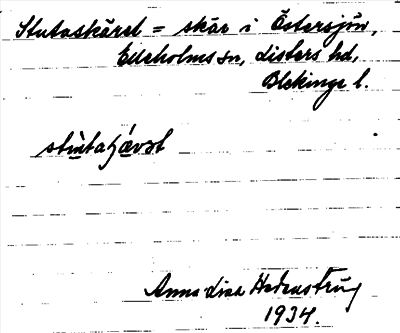 Stutaskäret = skär i Östersjön,
Elleholms sn, Listers hd,
Blekinge l.
stùtahávət
Anna Lisa Hedenstrüg
1934.